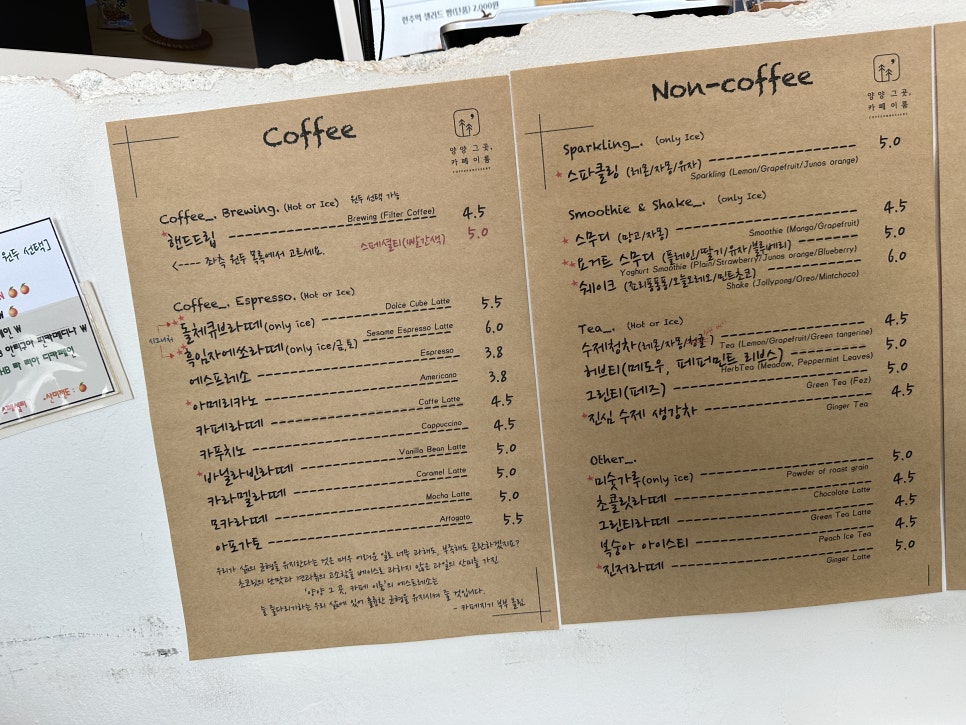 현추먹 샐러드 빵(단품) 2,000원
원두 선택]
Coffee
양양 그 곳,
카페이룸
Coffee_. Brewing. (Hot or Ice) 원두 선택 가능
*핸드드립 Brewing (Filter Coffee) 4.5
스페셜티(빨간색) 5.0
<----- 좌측 원두 목록에서 고르세요.
Coffee_. Espresso. (Hot or Ice)
시그니처
*돌체큐브라떼(only ice) Dolce Cube Latte 5.5
*흑임자에쏘라떼(only ice/금,토) Sesame Espresso Latte 6.0
에스프레소 Espresso 3.8
*아메리카노 Americano 3.8
카페라떼 Caffe Latte 4.5
카푸치노 Cappuccino 4.5
*바닐라빈라떼 Vanilla Bean Latte 5.0
카라멜라떼 Caramel Latte 5.0
모카라떼 Mocha Latte 5.0
아포가토 Affogato 5.5
우리가 삶의 균형을 유지한다는 것은 매우 어려운 일로 너무 과해도, 부족해도 곤란하겠지요?
초콜릿의 단맛과 견과류의 고소함을 베이스로 과하지 않은 과일의 산미를 가진
'양양 그 곳, 카페 이룸'의 에스프레소는
늘 줄다리기하는 우리 삶에 있어 훌륭한 균형을 유지시켜 줄 것입니다.
- 카페지기 부부 올림
Non-coffee
양양 그 곳,
카페이룸
Sparkling_. (only Ice)
*스파클링 (레몬/자몽/유자) 5.0
Sparkling (Lemon/Grapefruit/Junos orange)
Smoothie & Shake_. (only Ice)
*스무디 (망고/자몽) Smoothie (Manga/Grapefruit) 4.5
*요거트 스무디 (플레인/딸기/유자/블루베리) 5.0
Yoghurt Smoothie (Plain/Strawberry/Junos orange/Blueberry)
*쉐이크 (죠리퐁퐁퐁/오들오레오/민트초코) 6.0
Shake (Jollypong/Oreo/Mintchoco)
Tea_. (Hot or Ice)
수제청차(레몬/자몽/청귤) 4.5
Tea (Lemon/Grapefruit/Green tangerine)
허브티(메도우, 페퍼민트 리브스) 5.0
HerbTea (Meadow, Peppermint Leaves)
그린티(페즈) Green Tea (Fez) 5.0
*진심 수제 생강차 Ginger Tea 4.5
Other_.
*미숫가루(only ice) Powder of roast grain 5.0
초콜릿라떼 Chocolate Latte 4.5
그린티라떼 Green Tea Latte 4.5
복숭아 아이스티 Peach Ice Tea 4.5
*진저라떼 Ginger Latte 5.0